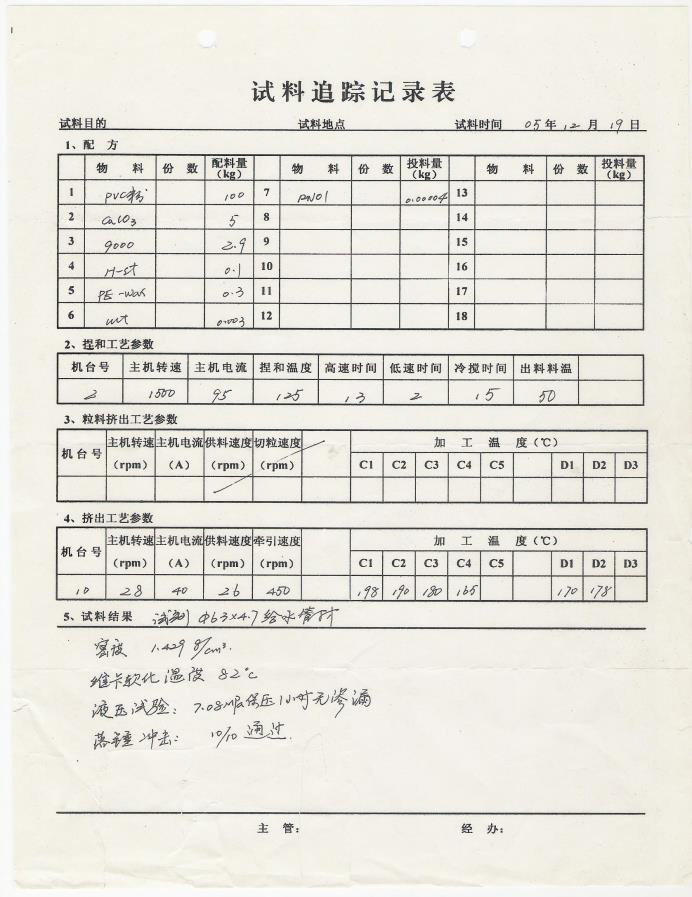 试料追踪记录表
试料目的 试料地点 试料时间 05年12月19日
1、配 方
物 料 份 数 配料量(kg) 物 料 份 数 投料量(kg) 物 料 份 数 投料量(kg)
1 PVC粉 100 7 PN01 0.00004 13
2 CaCO3 5 8 14
3 9000 2.9 9 15
4 H-st 0.1 10 16
5 PE-wax 0.3 11 17
6 0.003 12 18
2、捏和工艺参数
机台号 主机转速 主机电流 捏和温度 高速时间 低速时间 冷搅时间 出料料温
2 1500 95 125 13 2 15 50
3、粒料挤出工艺参数
机台号 主机转速(rpm) 主机电流(A) 供料速度(rpm) 切粒速度(rpm) 加 工 温 度(℃)
C1 C2 C3 C4 C5 D1 D2 D3
4、挤出工艺参数
机台号 主机转速(rpm) 主机电流(A) 供料速度(rpm) 牵引速度(rpm) 加 工 温 度(℃)
C1 C2 C3 C4 C5 D1 D2 D3
10 28 40 26 450 198 190 180 165 170 178
5、试料结果 试制 Φ63×4.7给水管材
密度 1.429 g/cm³.
维卡软化温度 82℃
液压试验: 7.08MPa保压1小时无渗漏
落锤冲击: 10/10 通过.
主 管: 经 办: